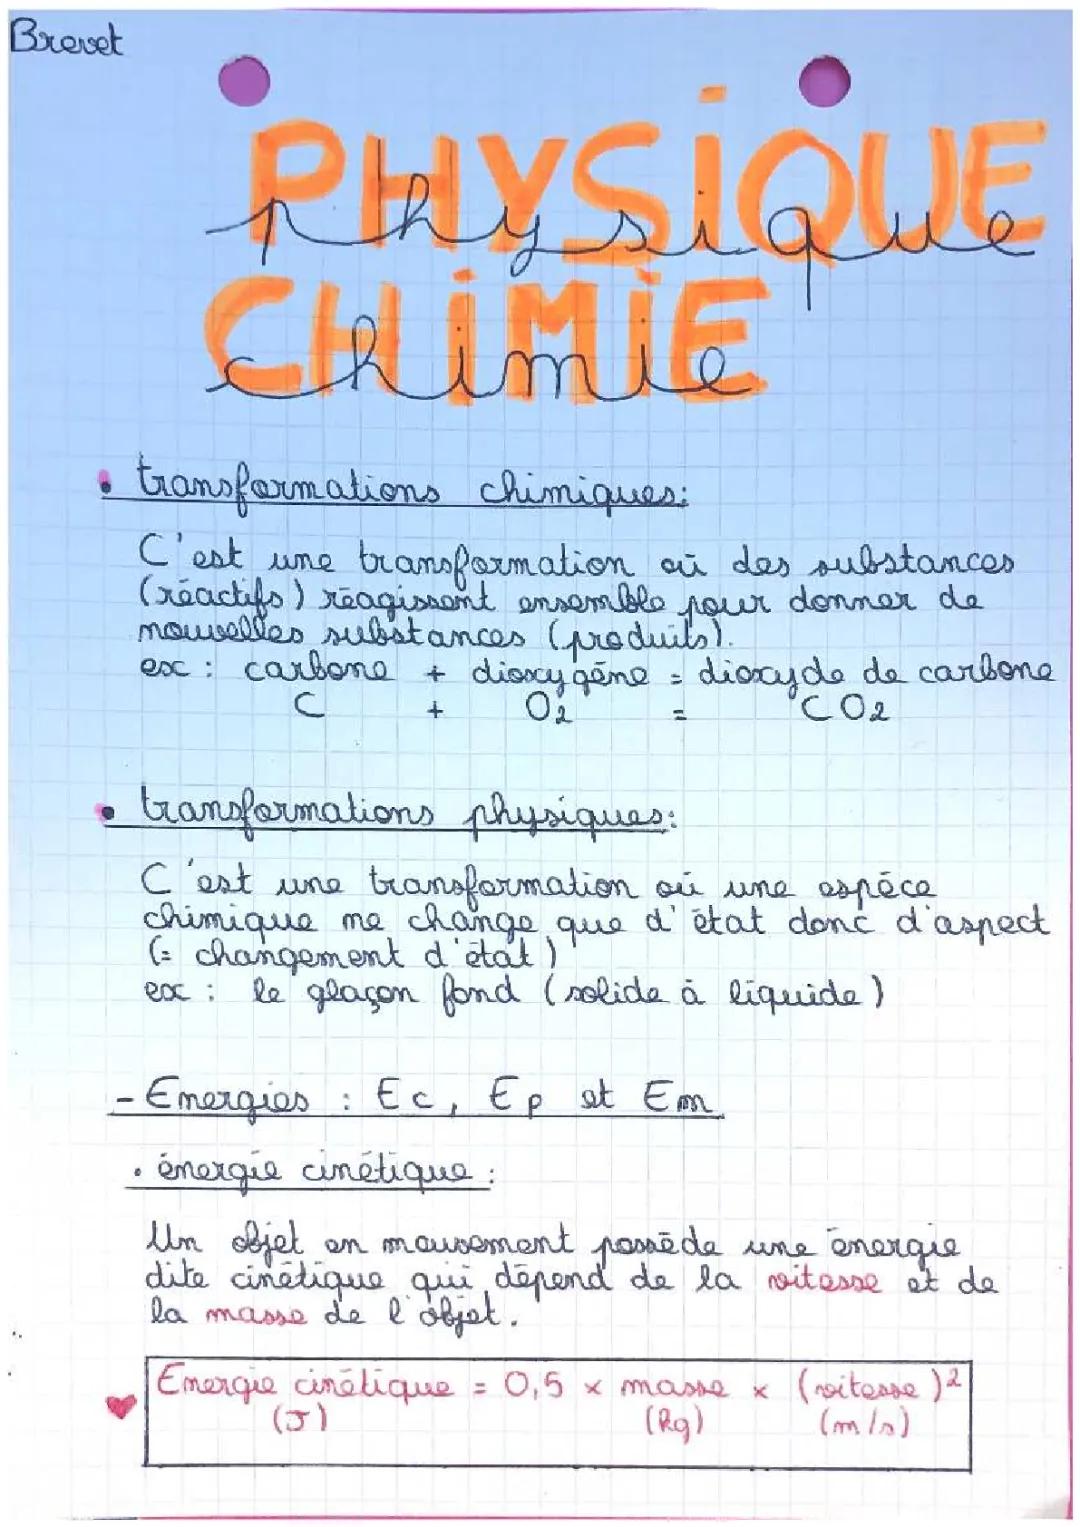 Brevet
PHYSIQUE
physique
CHIMIE
chimie
• transformations chimiques:
C'est une transformation où des substances
(réactifs) réagissent ensemble pour donner de
nouvelles substances (produits).
ex : carbone + dioxygène = dioxyde de carbone
C + O2 = CO2
• transformations physiques:
C'est une transformation où une espèce
chimique ne change que d'état donc d'aspect
(= changement d'état)
ex : le glaçon fond (solide à liquide)
- Energies : Ec, Ep et Em
• énergie cinétique :
Un objet en mouvement possède une énergie
dite cinétique qui dépend de la vitesse et de
la masse de l'objet.
Energie cinétique = 0,5 x masse x (vitesse)²
(J) (kg) (m/s)